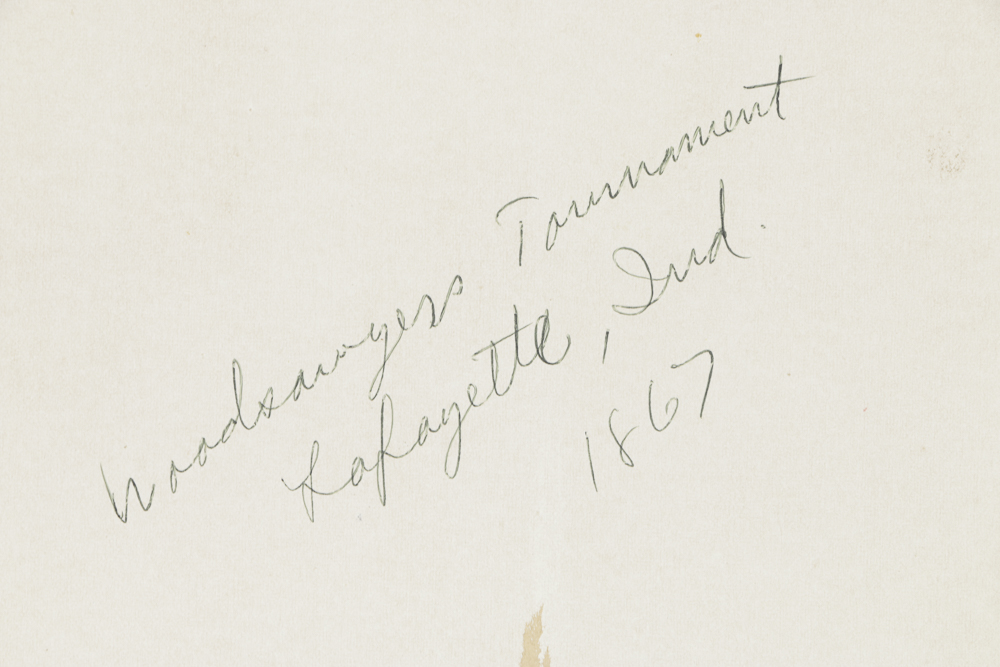 Woodsawyers Tournament
Lafayette, Ind.
1867